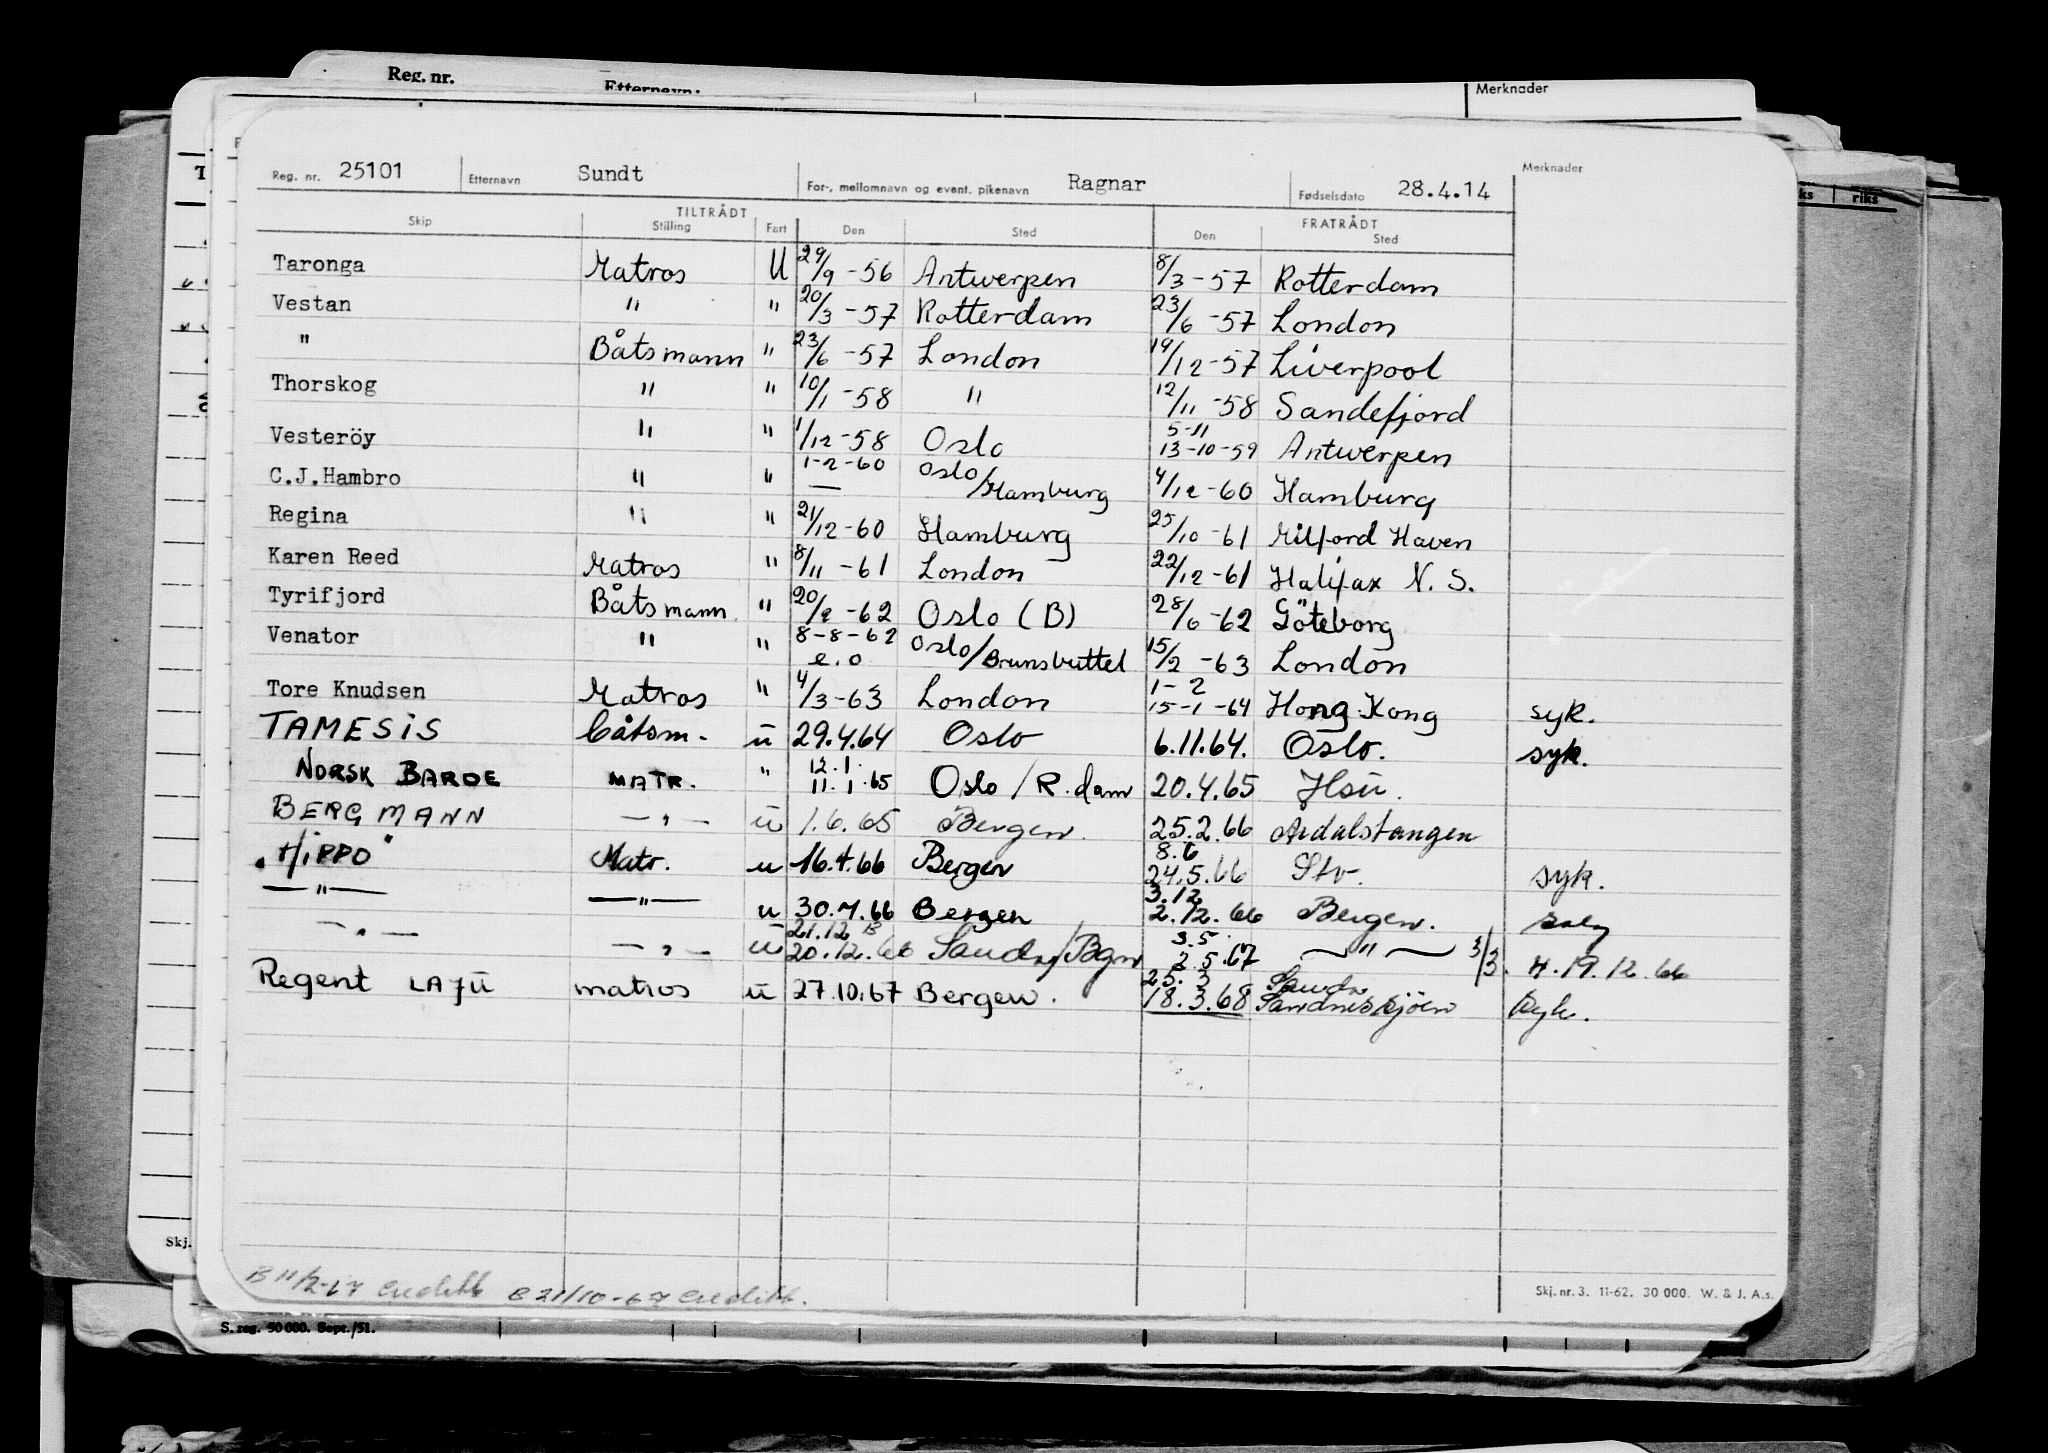 Reg. nr.
Etternavn:
Merknader
Reg. nr. 25101 Etternavn Sundt For-, mellomnavn og event. pikenavn Ragnar Fødselsdato 28.4.14 Merknader
TILTRÅDT FRATRÅDT
Skip Stilling Fart Den Sted Den Sted
Taronga Matros U 29/9-56 Antwerpen 8/3-57 Rotterdam
Vestan " " 20/3-57 Rotterdam 23/6-57 London
" Båtsmann " 23/6-57 London 19/12-57 Liverpool
Thorskog " " 10/1-58 " 12/11-58 Sandefjord
5-11
Vesteröy " " 1/12-58 Oslo 13-10-59 Antwerpen
C.J.Hambro " " 1-2-60 Oslo/Hamburg 4/12-60 Hamburg
Regina " " 21/12-60 Hamburg 25/10-61 Milford Haven
Karen Reed Matros " 8/11-61 London 22/12-61 Halifax N.S.
Tyrifjord Båtsmann " 20/2-62 Oslo (B) 28/6-62 Göteborg
Venator " " 8-8-62 e.o Oslo/Brunsbuttel 15/2-63 London
1-2
Tore Knudsen Matros " 4/3-63 London 15-1-64 Hong Kong syk.
TAMESIS båtsm. ū 29.4.64 Oslo 6.11.64. Oslo. syk.
12.1.
NORSK BARDE MATR. " 11.1.65 Oslo/R.dam 20.4.65 Hsu.
BERGMANN —"— ū 1.6.65 Bergen. 25.2.66 Årdalstangen
8.6
"HIPPO" Matr. u 16.4.66 Bergen 24.5.66 Stv. syk.
3.12
—"— —"— u 30.7.66 Bergen 2.12.66 Bergen.
21.12 B 3.5.
—"— —"— ū 20.12.66 /Bgn 2.5.67 —"— 3/3. H.19.12.66
25.3
Regent LAJŪ matros ū 27.10.67 Bergen. 18.3.68 Sandnessjøen syk.
B 11/2-67 B 21/10-67
Skj. nr. 3. 11-62. 30 000. W. & J. A.s.
S. reg. 50 000. Sept./51.
Skj.